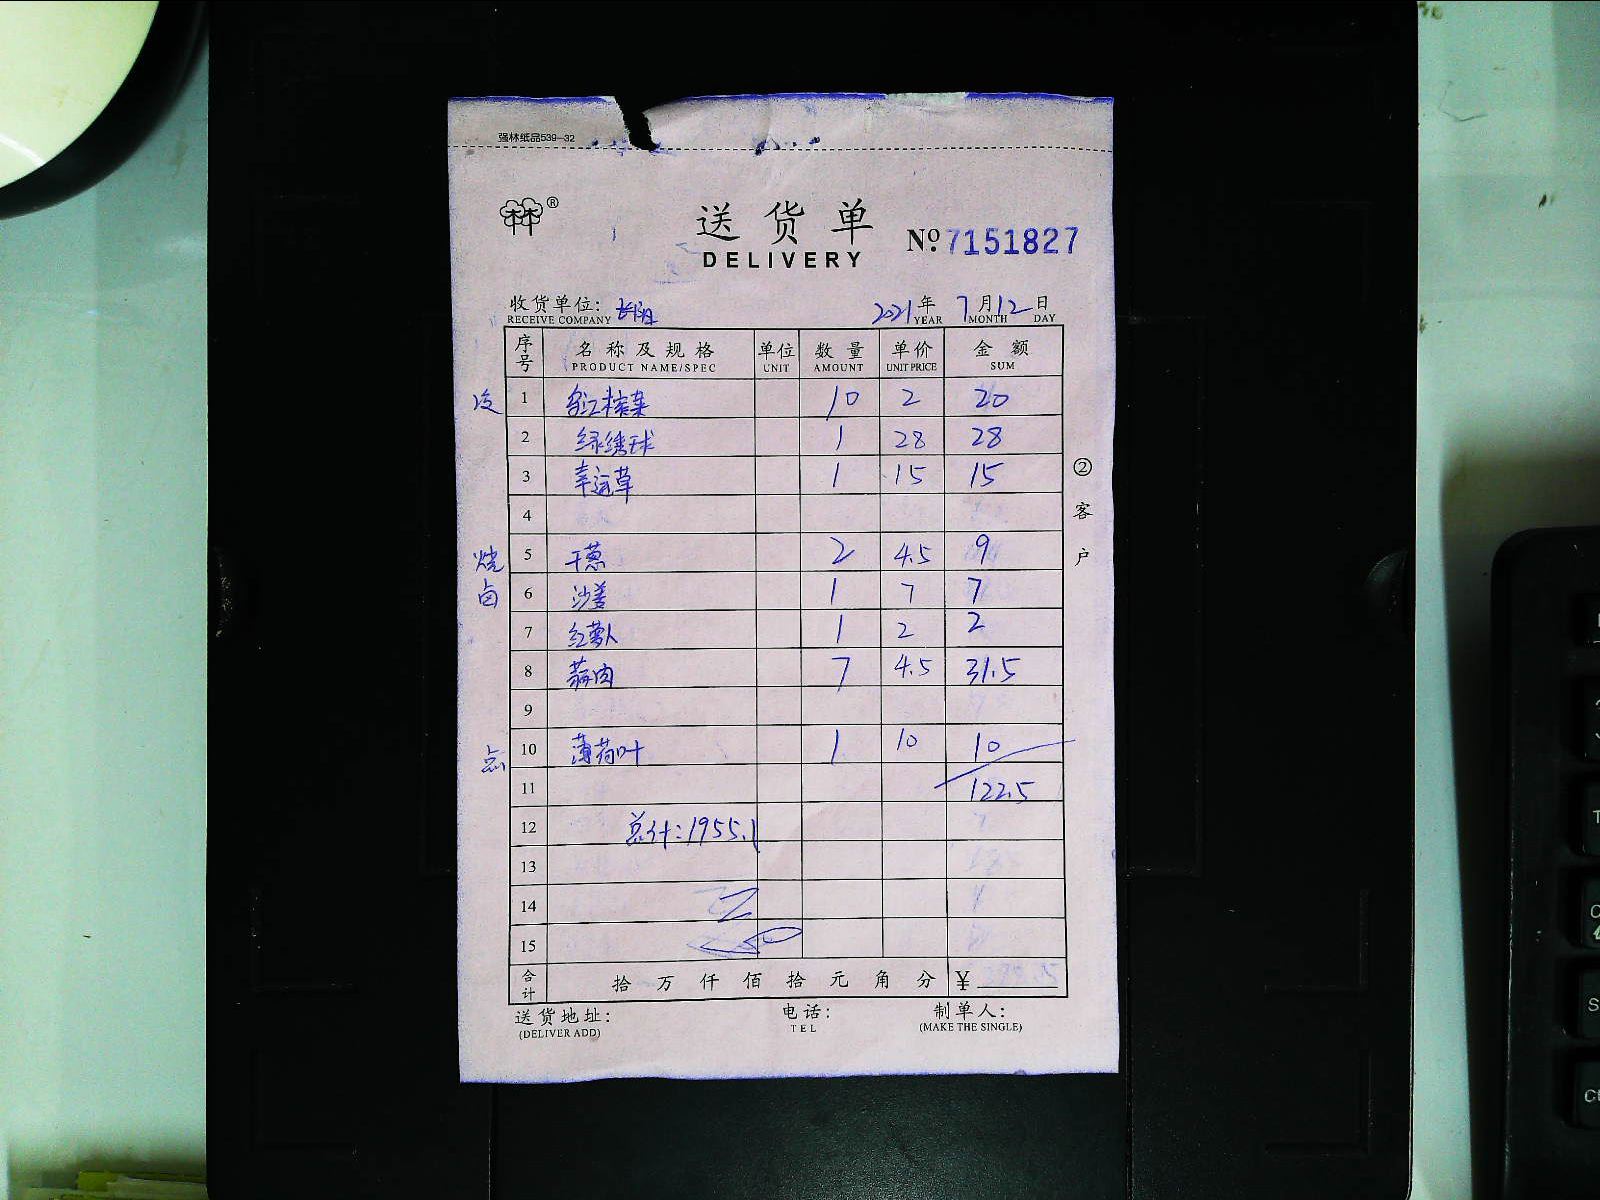 强林纸品539-32
送货单
DELIVERY
№ 7151827
收货单位:
RECEIVE COMPANY
2021年 7月12日
YEAR MONTH DAY
序号 名称及规格 单位 数量 单价 金额
PRODUCT NAME/SPEC UNIT AMOUNT UNIT PRICE SUM
1 余江榨菜 10 2 20
2 绿绣球 1 28 28
3 幸运草 1 15 15
4
烧卤 5 干葱 2 4.5 9
6 沙姜 1 7 7
7 红萝卜 1 2 2
8 蒜肉 7 4.5 31.5
9
点 10 薄荷叶 1 10 10
11 122.5
12 总计:1955.1
13
14
15
合计 拾万仟佰拾元角分 ¥
②客户
送货地址: 电话: 制单人:
(DELIVER ADD) TEL (MAKE THE SINGLE)